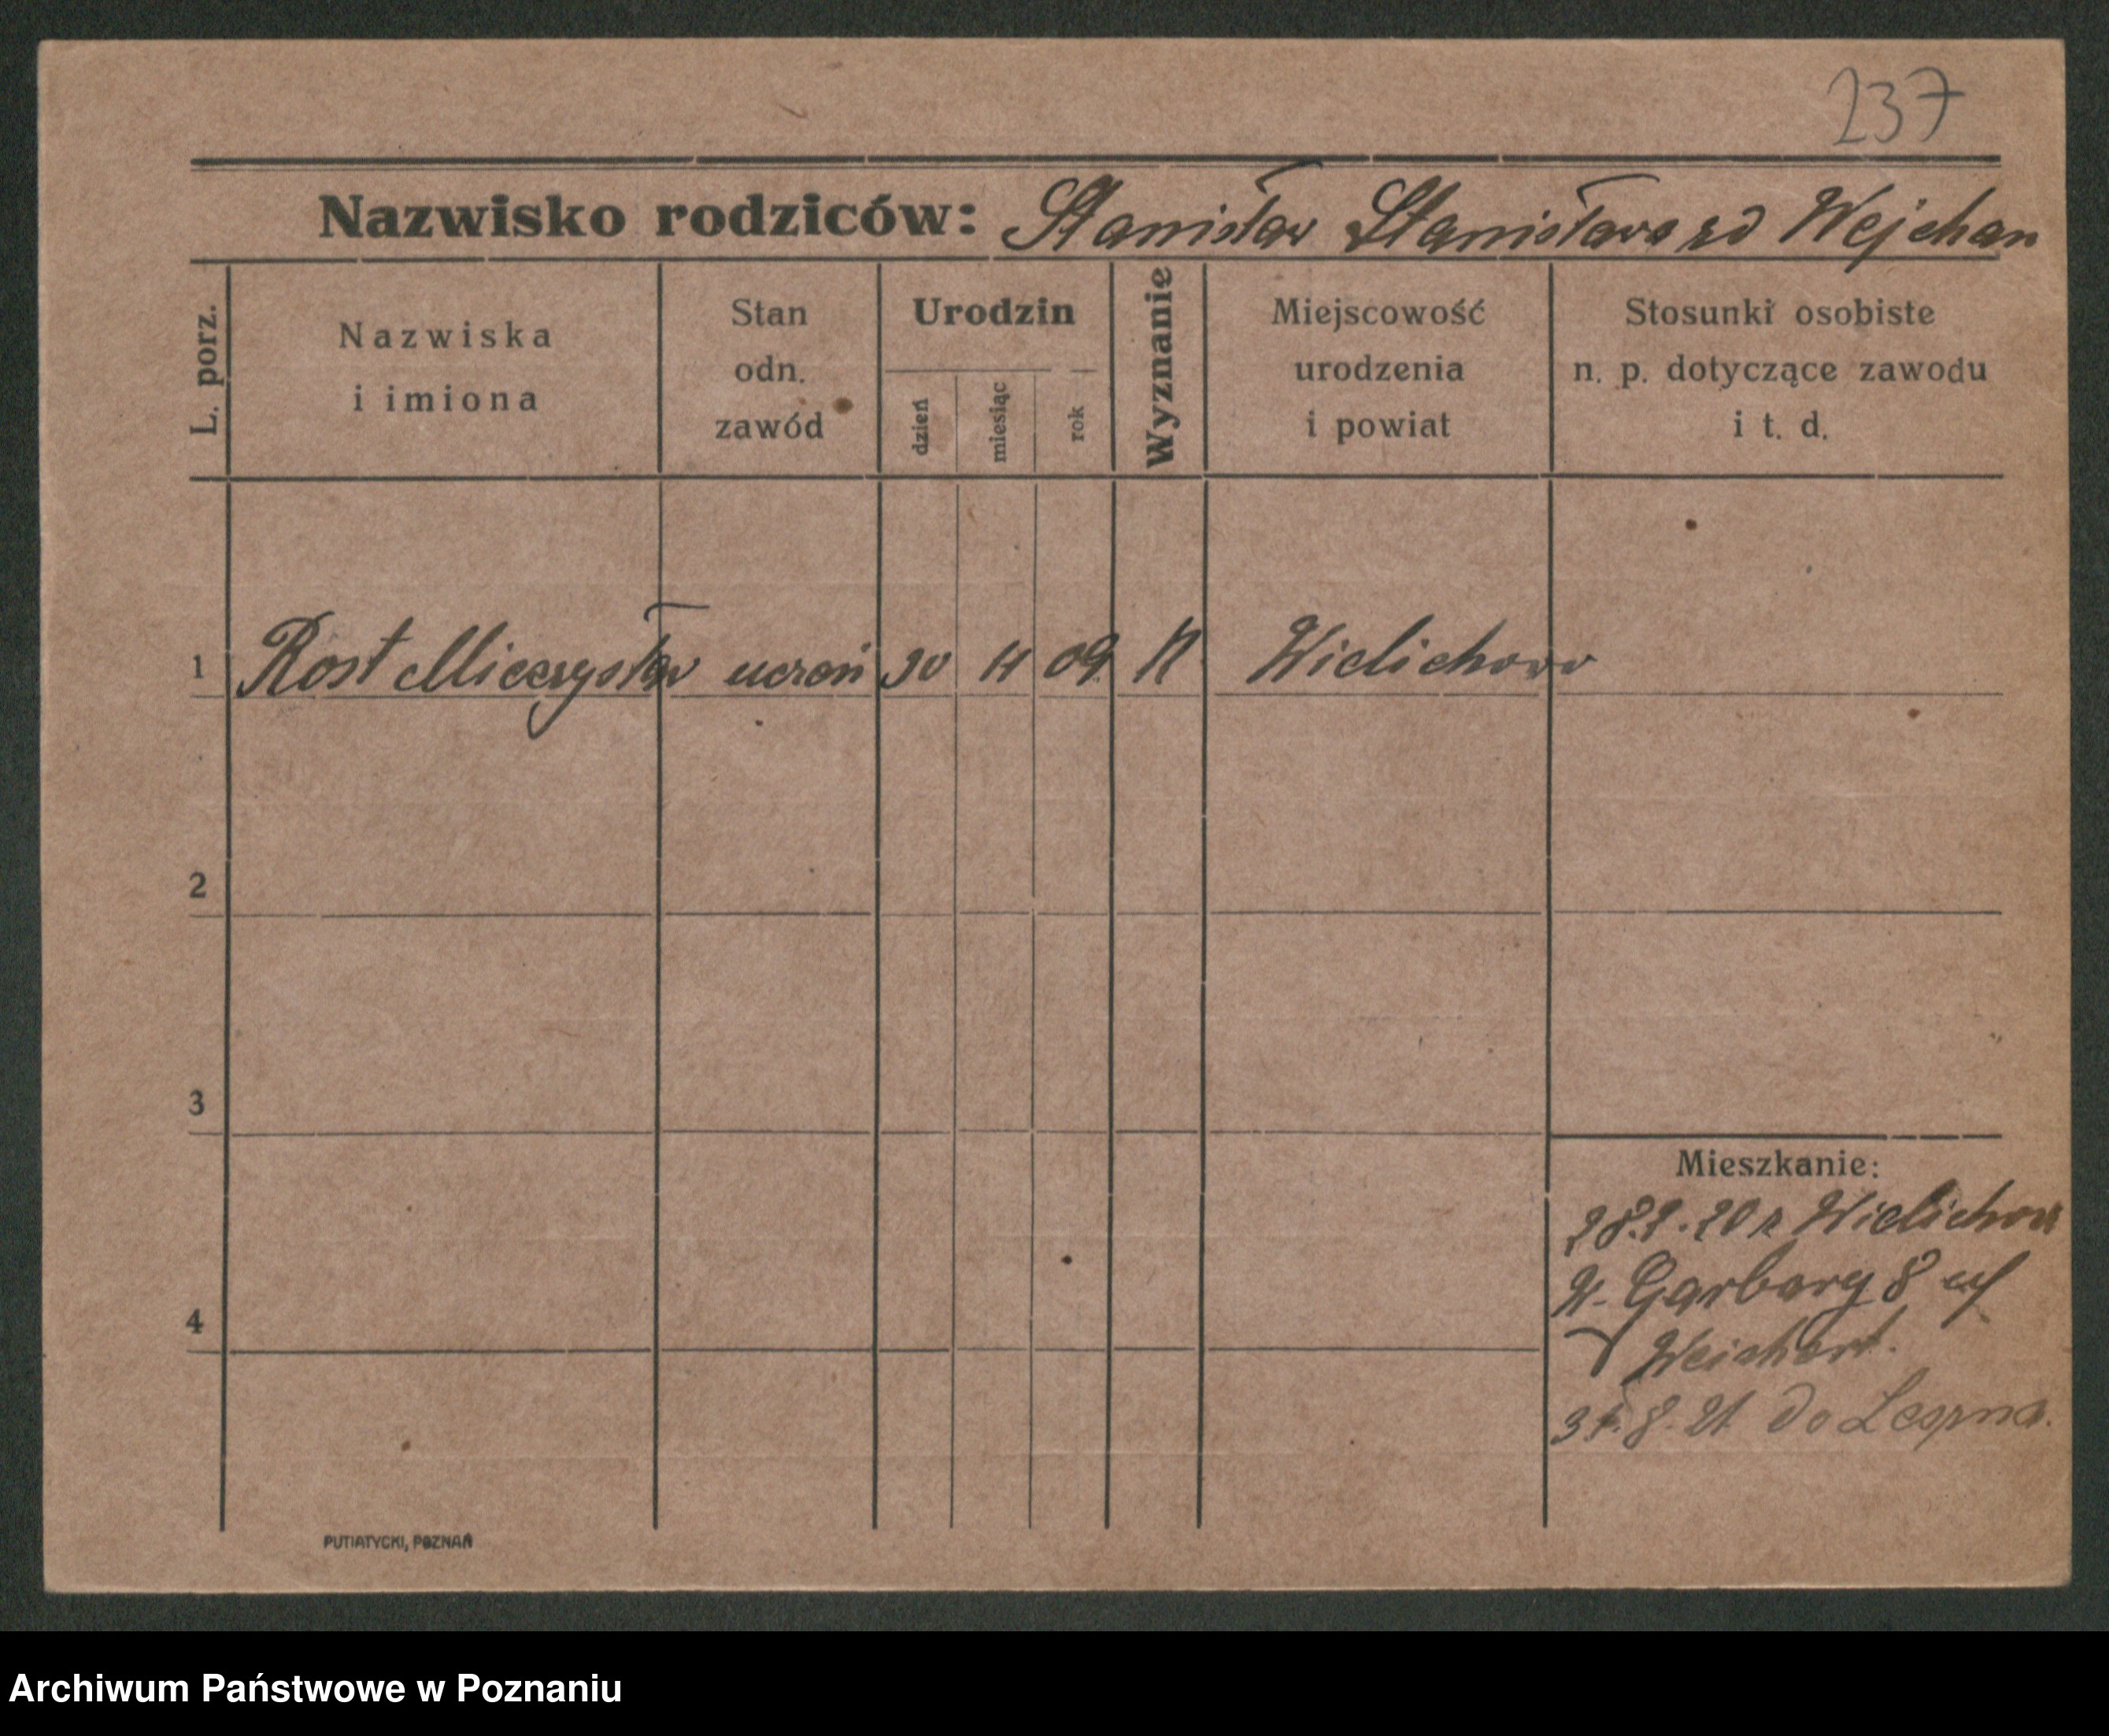 237
Nazwisko rodziców: Stanisław Stanisława zd Wejchan
L. porz.
Nazwiska
i imiona
Stan
odn.
zawód
Urodzin
dzień
miesiąc
rok
Wyznanie
Miejscowość
urodzenia
i powiat
Stosunki osobiste
n. p. dotyczące zawodu
i t. d.
1 Rost Mieczysław uczeń 30 11 09 K Wielichowo
2
3
Mieszkanie:
20 z Wielichow
4
Garbary 8
Weichert.
8. 21 do Leszna.
PUTIATYCKI, POZNAŃ
Archiwum Państwowe w Poznaniu